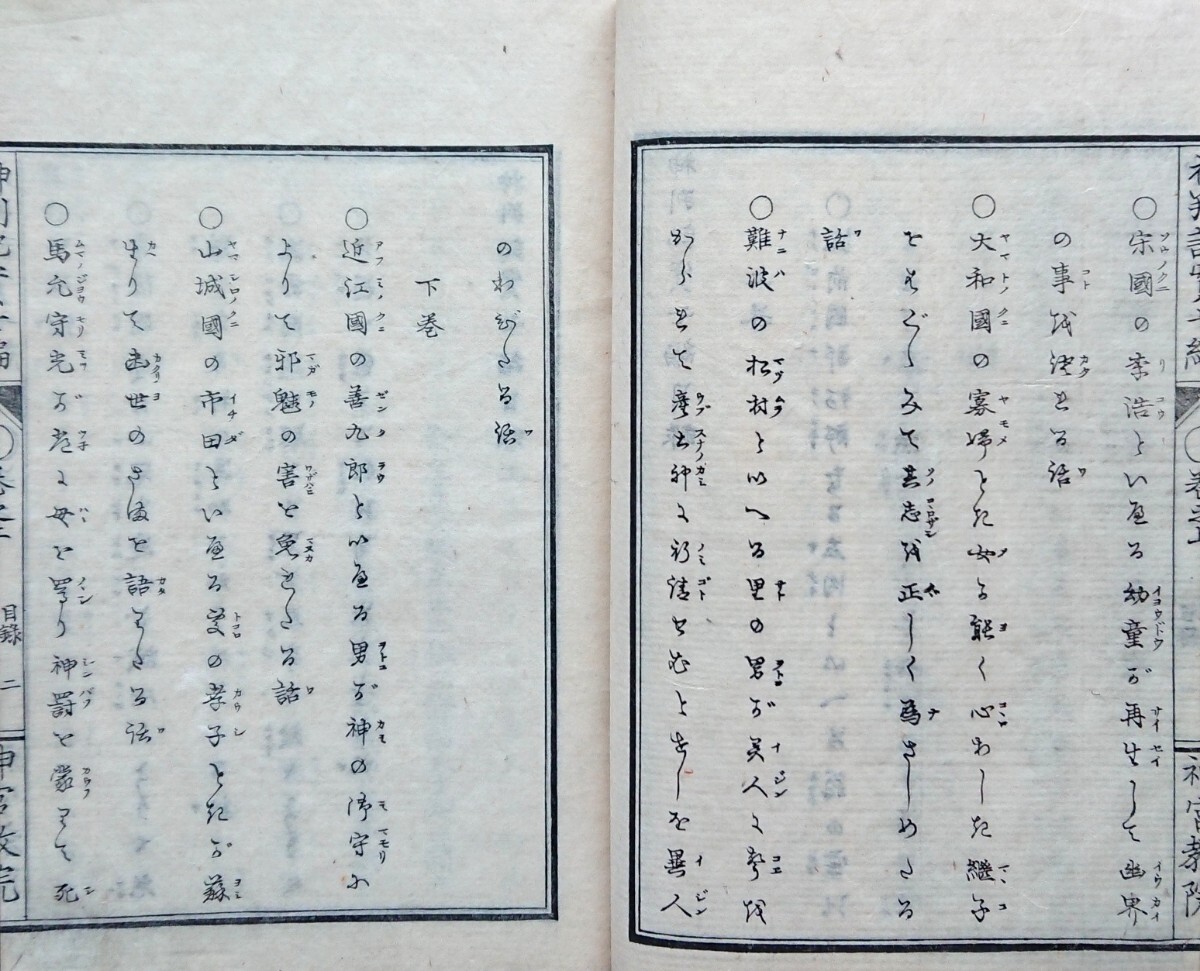 ○宋國の李浩といへる幼童が再生して幽界
の事を談せる話
○大和國の寡婦とき女よく能く心わしき繼子
をはぐくみて其志を正しく為さしめたる
話
○難波の松村といへる里の男が美人に聟を
からせて産土神に祈請せむとせしを異人
のわびたる話
下巻
○近江國の善九郎といへる男が神の御守に
よりて邪魅の害を免れたる話
○山城國の市田といへる処の孝子ときが蘇
生りて幽世のさまを語りたる話
○馬允守光が老に母を罵り神罰を蒙りて死
目錄 二
神宮教院